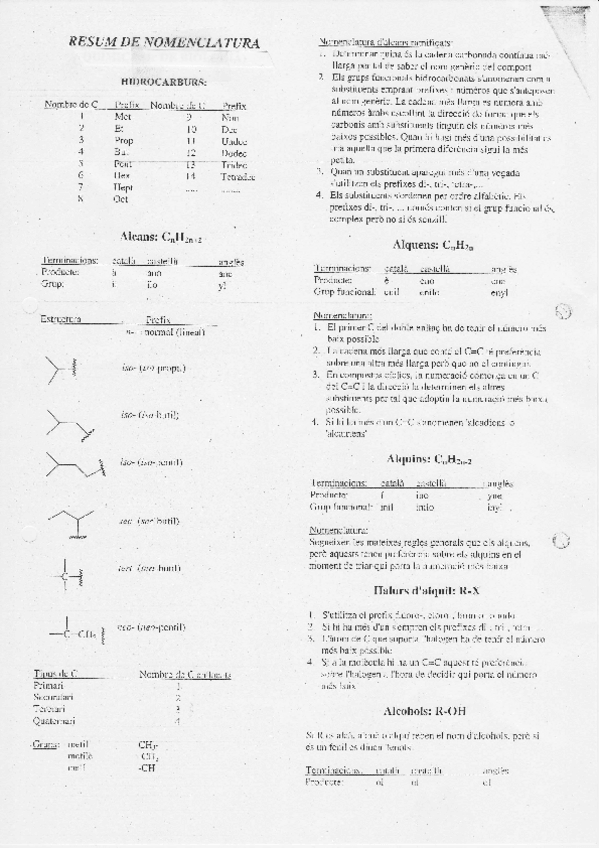 RESUM DE NOMENCLATURA
HIDROCARBURS:
Nombre de C Prefix Nombre de C Prefix
1 Met 9 Non
2 Et 10 Dec
3 Prop 11 Undec
4 But 12 Dodec
5 Pent 13 Tridec
6 Hex 14 Tetradec
7 Hept ...... ......
8 Oct
Alcans: CnH2n+2
Terminacions: català castellà anglès
Producte: à ano ane
Grup: il ilo yl
Estructura Prefix
n- normal (lineal)
iso- (iso-propil)
iso- (iso-butil)
iso- (iso-pentil)
sec- (sec-butil)
tert- (tert-butil)
C
C CH2
neo- (neo-pentil)
Tipus de C Nombre de C enllaçats
Primari 1
Secundari 2
Terciari 3
Quaternari 4
Grups: metil CH3-
metilè CH2
metí -CH
Nomenclatura d'alcans ramificats:
1. Determinar quina és la cadena carbonada contínua més
llarga per tal de saber el nom genèric del compost
2. Els grups funcionals hidrocarbonats s'anomenen com a
substituents emprant prefixes i números que s'anteposen
al nom genèric. La cadena més llarga es numera amb
números àrabs escollint la direcció de forma que els
carbonis amb substituents tinguin els números més
baixos possibles. Quan hi hagi més d'una possibilitat es
tria aquella que la primera diferència sigui la més
petita.
3. Quan un substituent aparegui més d'una vegada
s'utilitzen els prefixes di-, tri-, tetra-,...
4. Els substituents s'ordenen per ordre alfabètic. Els
prefixes di-, tri-, ... només conten si el grup funcional és
complex però no si és senzill.
Alquens: CnH2n
Terminacions: català castellà anglès
Producte: è eno ene
Grup funcional: enil enilo enyl
Nomenclatura:
1. El primer C del doble enllaç ha de tenir el número més
baix possible
2. La cadena més llarga que conté el C=C té preferència
sobre una altra més llarga però que no el contingui.
3. En compostos cíclics, la numeració comença en un C
del C=C i la direcció la determinen els altres
substituents per tal que adoptin la numeració més baixa
possible.
4. Si hi ha més d'un C=C s'anomenen 'alcadiens' o
'alcatriens'
Alquins: CnH2n-2
Terminacions: català castellà anglès
Producte: í ino yne
Grup funcional: inil inilo inyl
Nomenclatura:
Segueixen les mateixes regles generals que els alquens,
però aquests tenen preferència sobre els alquins en el
moment de triar qui porta la numeració més baixa
Halurs d'alquil: R-X
1. S'utilitza el prefix fluoro-, cloro-, bromo- o iodo-
2. Si hi ha més d'un s'empren els prefixes di-, tri-, tetra-...
3. L'àtom de C que suporta l'halogen ha de tenir el número
més baix possible
4. Si a la molècula hi ha un C=C aquest té preferència
sobre l'halogen a l'hora de decidir qui porta el número
més baix
Alcohols: R-OH
Si R és alcà, alquè o alquí reben el nom d'alcohols, però si
és un fenil es diuen fenols.
Terminacions: català castellà anglès
Producte: ol ol ol